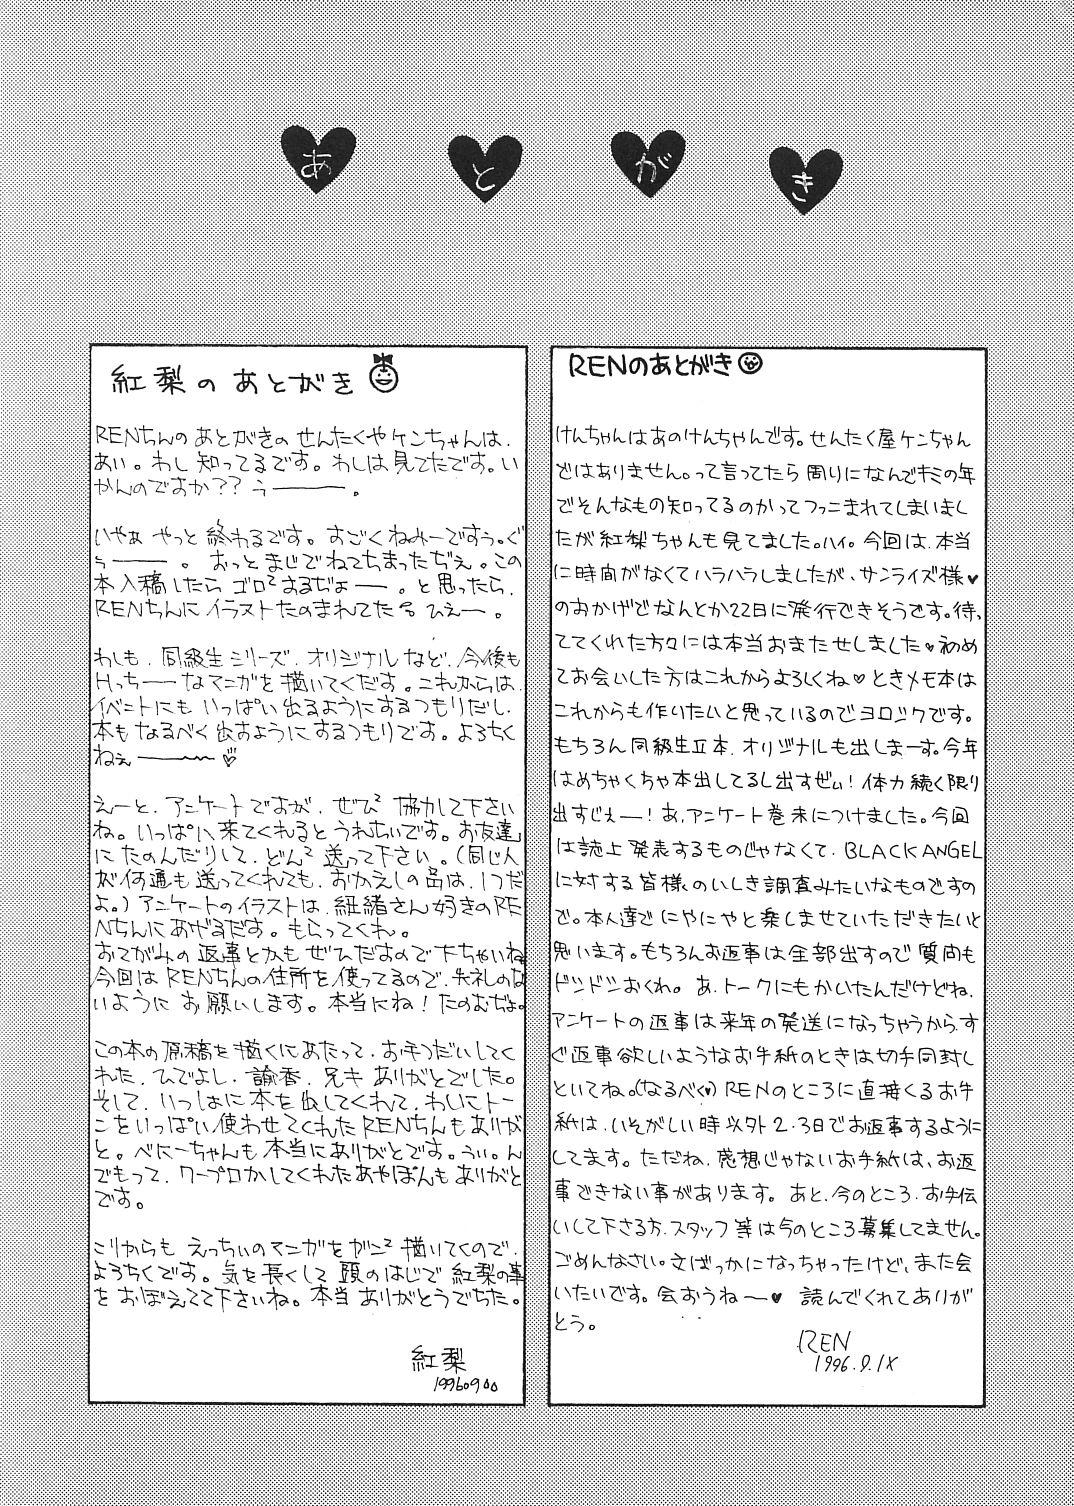 あとがき
紅梨のあとがき
RENちんのあとがきのせんたくやケンちゃんは、
あい。わし知ってるです。わしは見てたです。い
かんのですか??うー。
いやぁやっと終わるです。すごくねみーですぅ。ぐ
ぅー。おっとまじでねてちまったぢぇ。この
本入稿したらゴロ²するぢょー。と思ったら、
RENちんにイラストたのまれてた ひぇー。
わしも、同級生シリーズ、オリジナルなど、今後も
Hっちーなマンガを描いてくだす。これからは、
イベントにもいっぱい出るようにするつもりだし、
本もなるべく出すようにするつもりです。よろちく
ねぇー♡
えーと、アンケートですが、ぜひ²協力して下さい
ね。いっぱい来てくれるとうれちいです。お友達
にたのんだりして、どん²送って下さい。(同じ人
が何通も送ってくれても、おかえしの品は、1つだ
よ。)アンケートのイラストは、紐緒さん好きのRE
Nちんにあげるだす。もらってくれ。
おてがみの返事とかもぜひだすので下ちゃいね
今回はRENちんの住所を使ってるので、失礼のな
いようにお願いします。本当にね!たのむぢょ。
この本の原稿を描くにあたって、お手つだいしてく
れた、ひでよし、諭香、兄キありがとでした。
そして、いっしょに本を出してくれて、わしにトー
ンをいっぱい使わせてくれたRENちんもありが
と。べにーちゃんも本当にありがとです。うぃ。ん
でもって、ワープロかしてくれたあやぽんもありがと
です。
これからもえっちぃのマンガをガン²描いてくので、
よろちくです。気を長くして頭のはじで紅梨の事
をおぼえてて下さいね。本当ありがとうでちた。
紅梨
RENのあとがき
けんちゃんはあのけんちゃんです。せんたく屋ケンちゃん
ではありません。って言ってたら周りになんでキミの年
でそんなもの知ってるのかってつっこまれてしまいまし
たが紅梨ちゃんも見てました。ハイ。今回は、本当
に時間がなくてハラハラしましたが、サンライズ様♥
のおかげでなんとか22日に発行できそうです。待っ
ててくれた方々には本当おまたせしました♥初め
てお会いした方はこれからよろしくね♥ときメモ本は
これからも作りたいと思っているのでヨロシクです。
もちろん同級生II本、オリジナルも出しまーす。今年
はめちゃくちゃ本出してるし出すぜい!体力続く限り
出すじぇー!あ、アンケート巻末につけました。今回
は誌上発表するものじゃなくて、BLACK ANGEL
に対する皆様のいしき調査みたいなものですの
で。本人達でにやにやと楽しませていただきたいと
思います。もちろんお返事は全部出すので質問も
ドンドンおくれ。あ、トークにもかいたんだけどね、
アンケートの返事は来年の発送になっちゃうから、す
ぐ返事欲しいようなお手紙のときは切手同封し
といてね。(なるべく♥)RENのところに直接くるお手
紙は、いそがしい時以外2、3日でお返事するように
してます。ただね、感想じゃないお手紙は、お返
事できない事があります。あと、今のところ、お手伝
いして下さる方、スタッフ等は今のところ募集してません。
ごめんなさい。文ばっかになっちゃったけど、また会
いたいです。会おうねー♥ 読んでくれてありが
とう。
REN
1996.9.1X